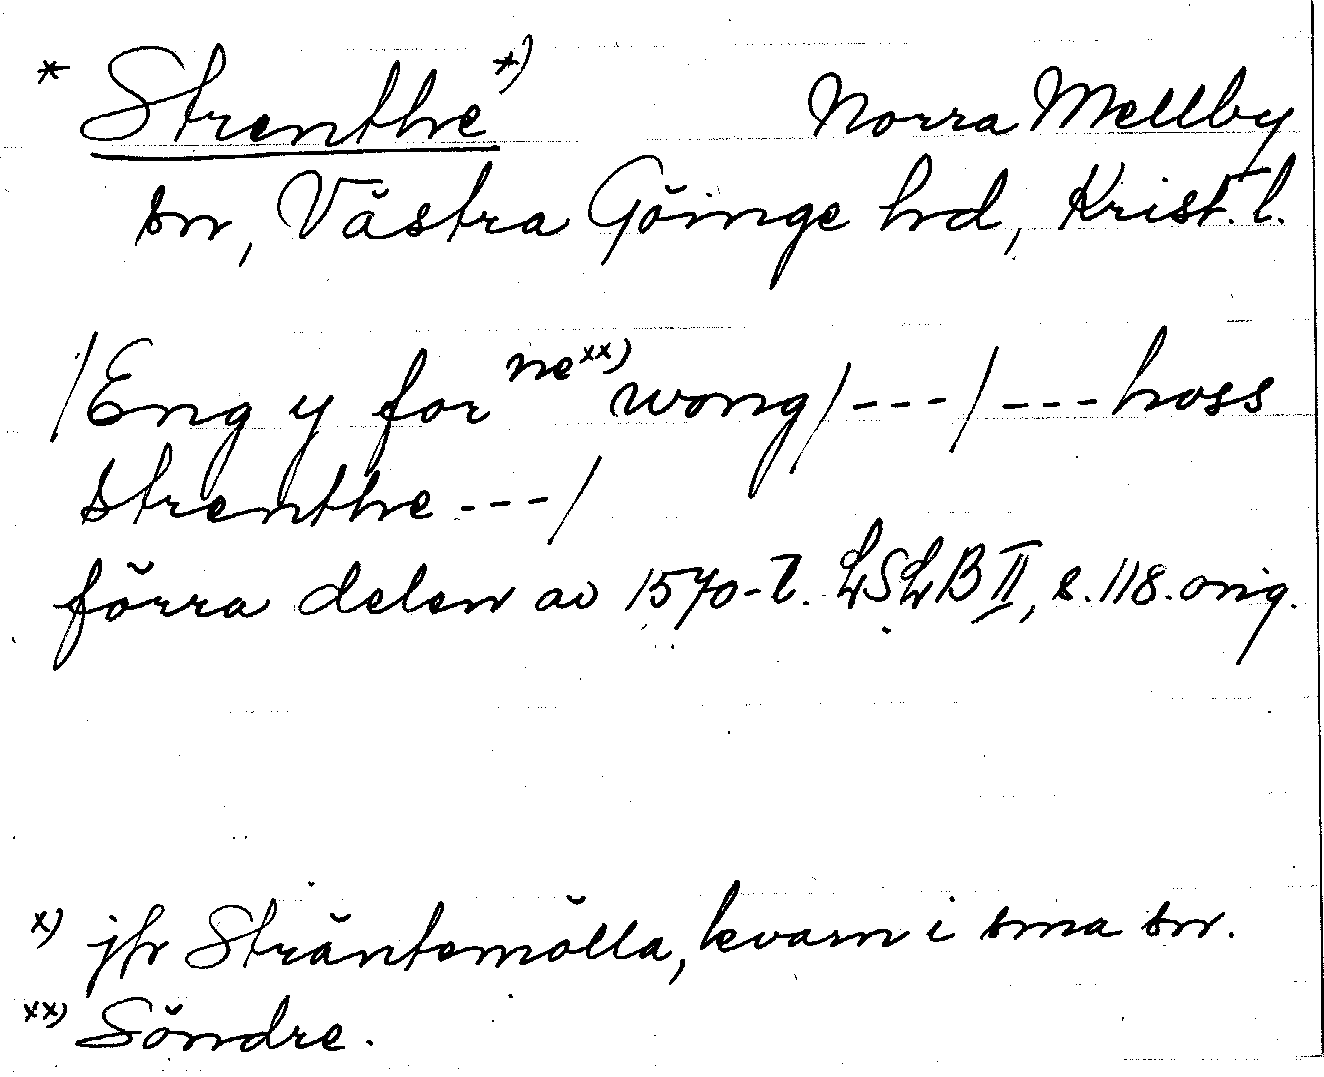 * Strenthe *) Norra Mellby
sn, Västra Göinge hd, Krist. l.
/Eng y for ne xx) wong/---/---hoss
strenthe---/
förra delen av 1570-t. LSLB II, s. 118. orig.
x) jfr Sträntemölla, kvarn i sma sn.
xx) Söndre.